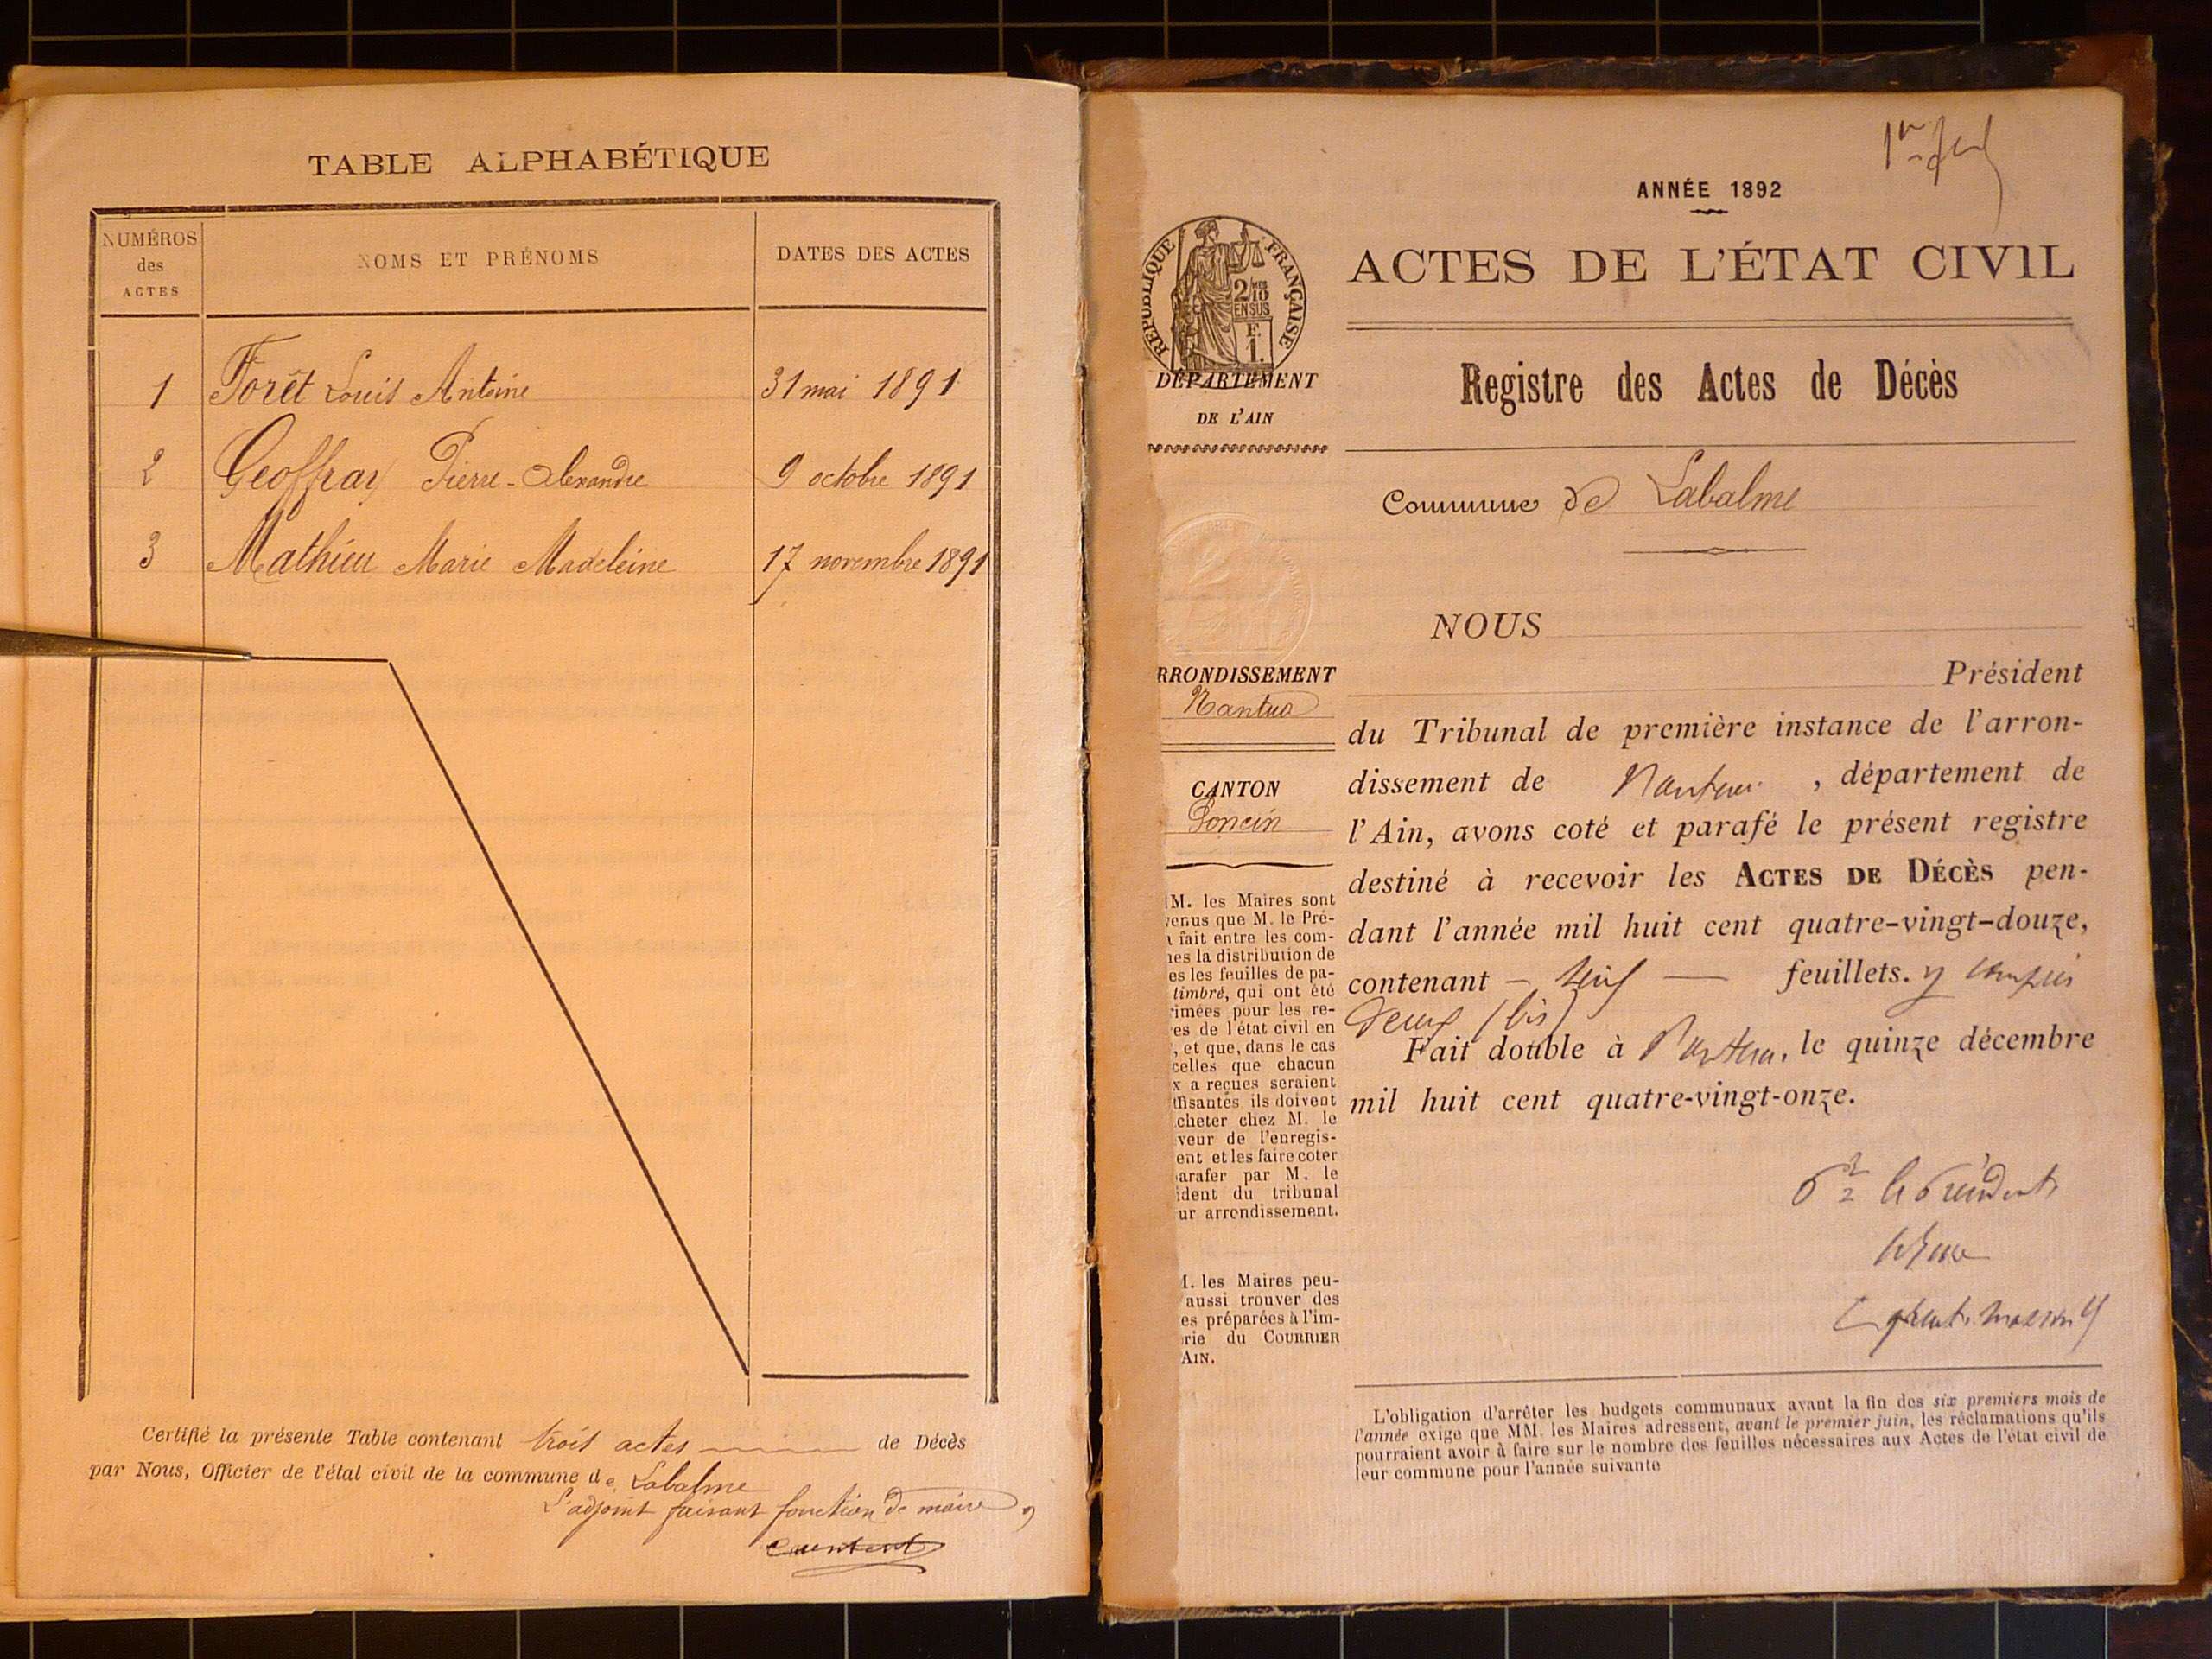 TABLE ALPHABÉTIQUE
NUMÉROS
des
ACTES
NOMS ET PRÉNOMS
DATES DES ACTES
1 Forêt Louis Antoine 31 mai 1891
2 Geoffray Pierre-Alexandre 9 octobre 1891
3 Mathieu Marie Madeleine 17 novembre 1891
Certifié la présente Table contenant trois actes de Décès
par Nous, Officier de l'état civil de la commune de Labalme
L'adjoint faisant fonction de maire,
ANNÉE 1892
ACTES DE L'ÉTAT CIVIL
RÉPUBLIQUE FRANÇAISE
2/10
EN SUS
F.
1.
DÉPARTEMENT
DE L'AIN
Registre des Actes de Décès
Commune de Labalme
RRONDISSEMENT
Nantua
CANTON
Poncin
M. les Maires sont
venus que M. le Pré-
a fait entre les com-
nes la distribution de
es les feuilles de pa-
timbré, qui ont été
rimées pour les re-
es de l'état civil en
, et que, dans le cas
celles que chacun
x a reçues seraient
ffisantes ils doivent
cheter chez M. le
veur de l'enregis-
ent et les faire coter
arafer par M. le
ident du tribunal
ur arrondissement.
M. les Maires peu-
aussi trouver des
es préparées à l'im-
rie du COURRIER
AIN.
NOUS
Président
du Tribunal de première instance de l'arron-
dissement de Nantua, département de
l'Ain, avons coté et parafé le présent registre
destiné à recevoir les ACTES DE DÉCÈS pen-
dant l'année mil huit cent quatre-vingt-douze,
contenant feuillets. y compris
deux (bis)
Fait double à Nantua, le quinze décembre
mil huit cent quatre-vingt-onze.
le Président
L'obligation d'arrêter les budgets communaux avant la fin des six premiers mois de
l'année exige que MM. les Maires adressent, avant le premier juin, les réclamations qu'ils
pourraient avoir à faire sur le nombre des feuilles nécessaires aux Actes de l'état civil de
leur commune pour l'année suivante